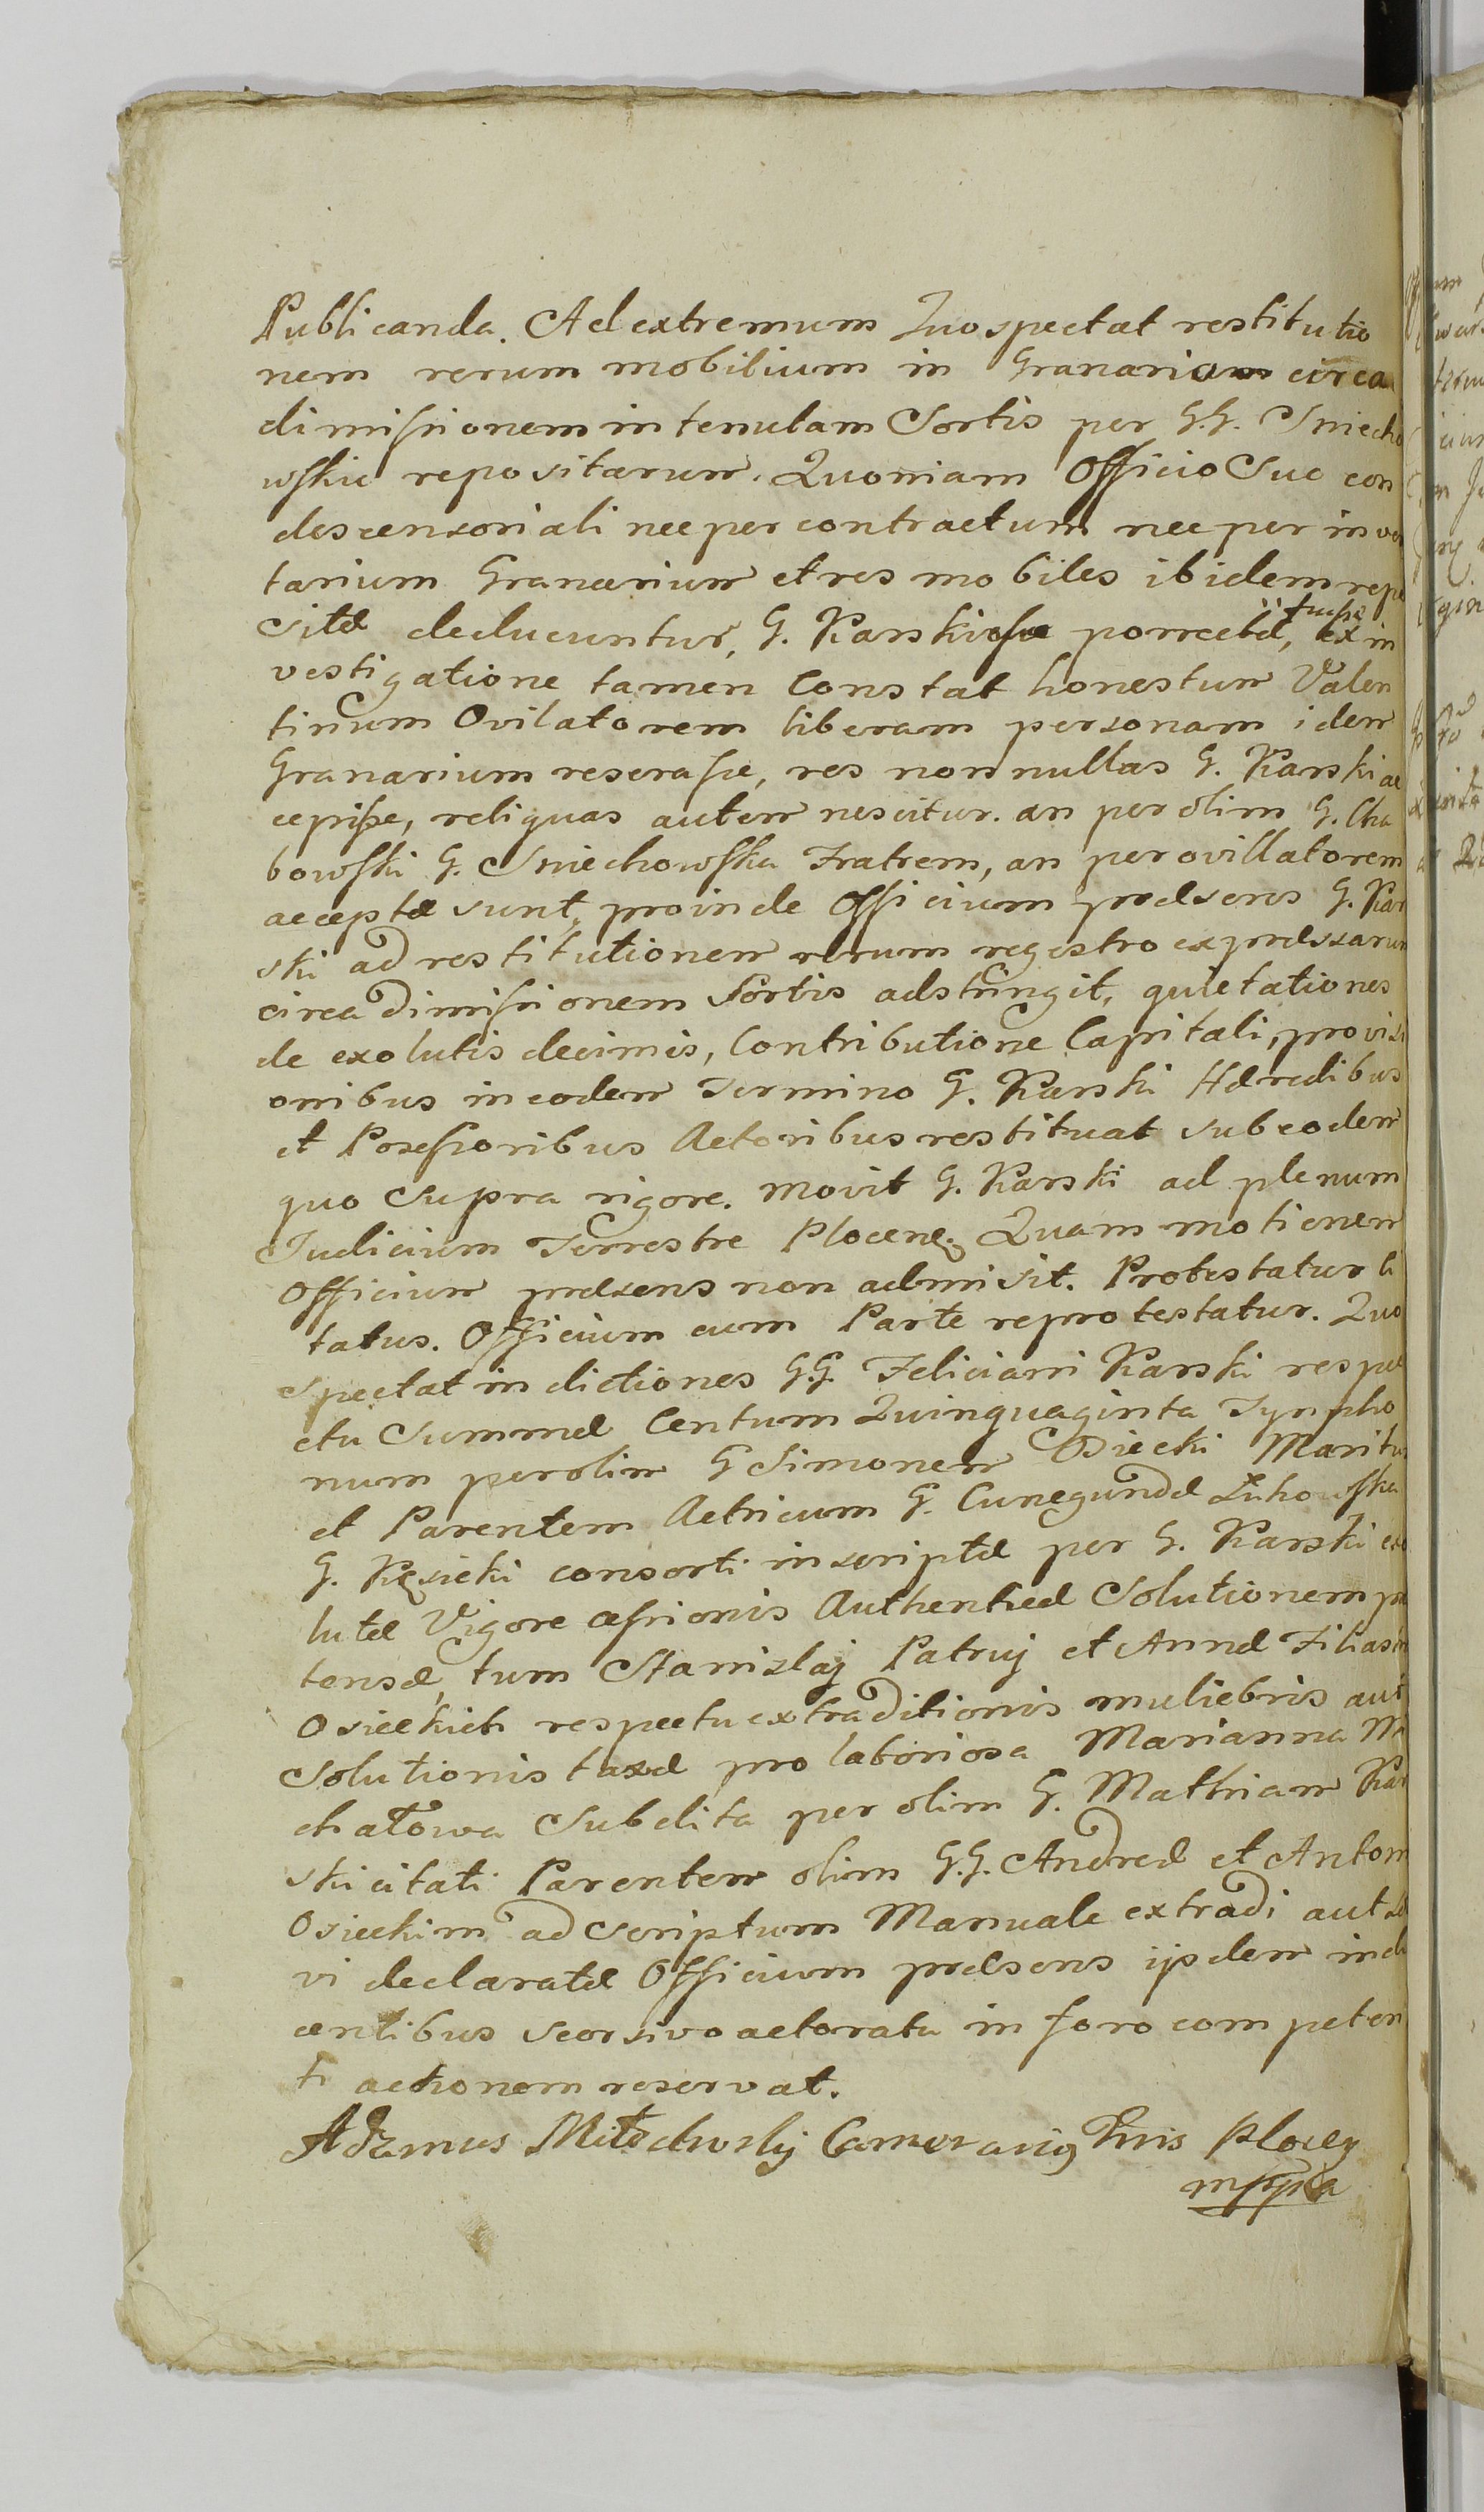 Publicanda. Ad extremum Quo spectat restitutio
nem rerum mobilium in Granarium circa
dimissionem in tenutam Sortis per G.G. Sniecho
wskie repositarum. Quoniam Officio Suo con
descensoriali nec per contractum nec per inven
tarium Granarium et res mobiles ibidem repo
sitæ deducuntur, G. Karski porrectæ, ex in
vestigatione tamen Constat honestum Valen
tinum Ovilatorem liberam personam idem
Granarium reserasse, res nonnullas G. Karski ac
cepisse, reliquas autem nescitur. an per olim G. Cha
bowski G. Sniechowska Fratrem, an per ovillatorem
acceptæ sunt, proinde Officium præsens G. Kar
ski ad restitutionem rerum regestro expressarum
circa dimissionem Sortis adstringit, quietationes
de exolutis decimis, Contributione Capitali, provisi
onibus in eodem Termino G. Karski Hæredibus
et Possessoribus Actoribus restituat sub eodem
quo Supra rigore. Movit G. Karski ad plenum
Judicium Terrestre Plocense Quam motionem
Officium præsens non admisit. Protestatur Ci
tatus. Officium cum Parte reprotestatur. Quo
Spectat indictiones G.G. Feliciani Karski respe
ctu Summæ Centum Quinquaginta Tynpho
num per olim G Simonem Osiecki Maritum
et Parentem Actricum G. Cunegundæ Zuhowska
G. Kęsicki consorti inscriptæ per G. Karski exo
lutæ Vigore cessionis Authenticæ Solutionem præ
tensæ, tum Stanislaj Patruj et Annæ Filiastr
Osieckich respectu extraditionis muliebris aut
Solutionis taxæ pro laboriosa Marianna Mi
chałowa Subdita per olim G. Mathiam Kar
ski citati Parentem olim G.G. Andreæ et Antoni
Osieckim ad Scriptum Manuale extradi aut sol
vi declaratæ Officium præsens ijsdem indi
centibus seorsivo actoratu in foro competen
ti actionem reservat.
Adamus Camerarig Tris Plocen
mppa